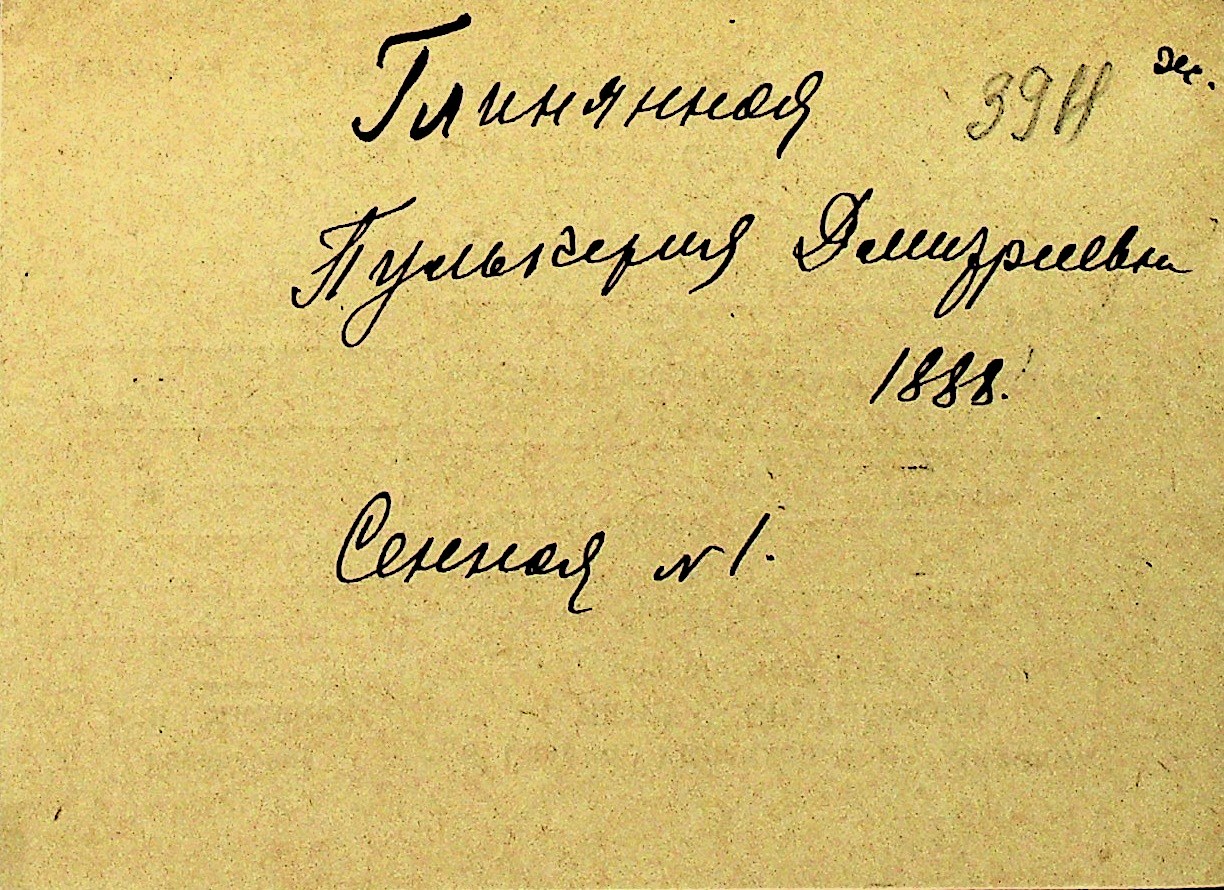 Глинянная 39 Н ж.
Пульхерия Дмитриевна
1888.
Сенная № 1.